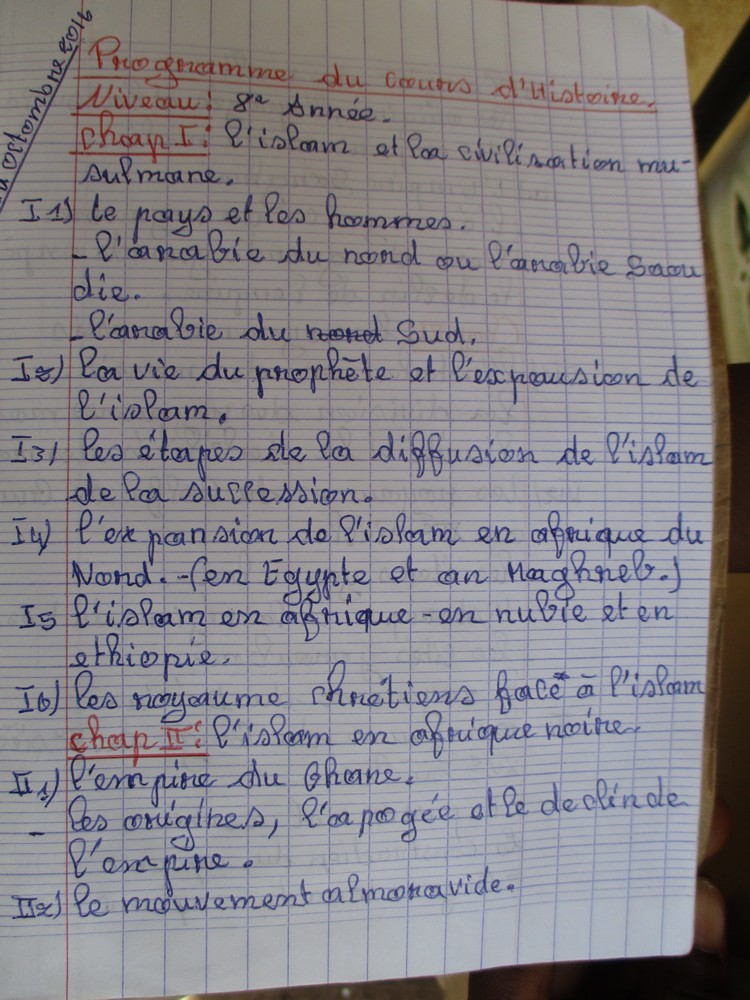 Programme du cours d'Histoire.
Niveau: 8e Année.
Chap I: l'islam et la civilisation mu-
sulmane.
I1) le pays et les hommes.
- l'arabie du nord ou l'arabie Saou
die.
- l'arabie du nord Sud.
I2) la vie du prophète et l'expansion de
l'islam.
I3) les étapes de la diffusion de l'islam
de la succession.
I4) l'expansion de l'islam en afrique du
Nord. - (en Egypte et au Maghreb.)
I5 l'islam en afrique - en nubie et en
ethiopie.
I6) les royaume chrétiens face à l'islam
chap II: l'islam en afrique noire.
II1) l'empire du Ghana.
- les origines, l'apogée et le declin de
l'empire.
II2) le mouvement almoravide.